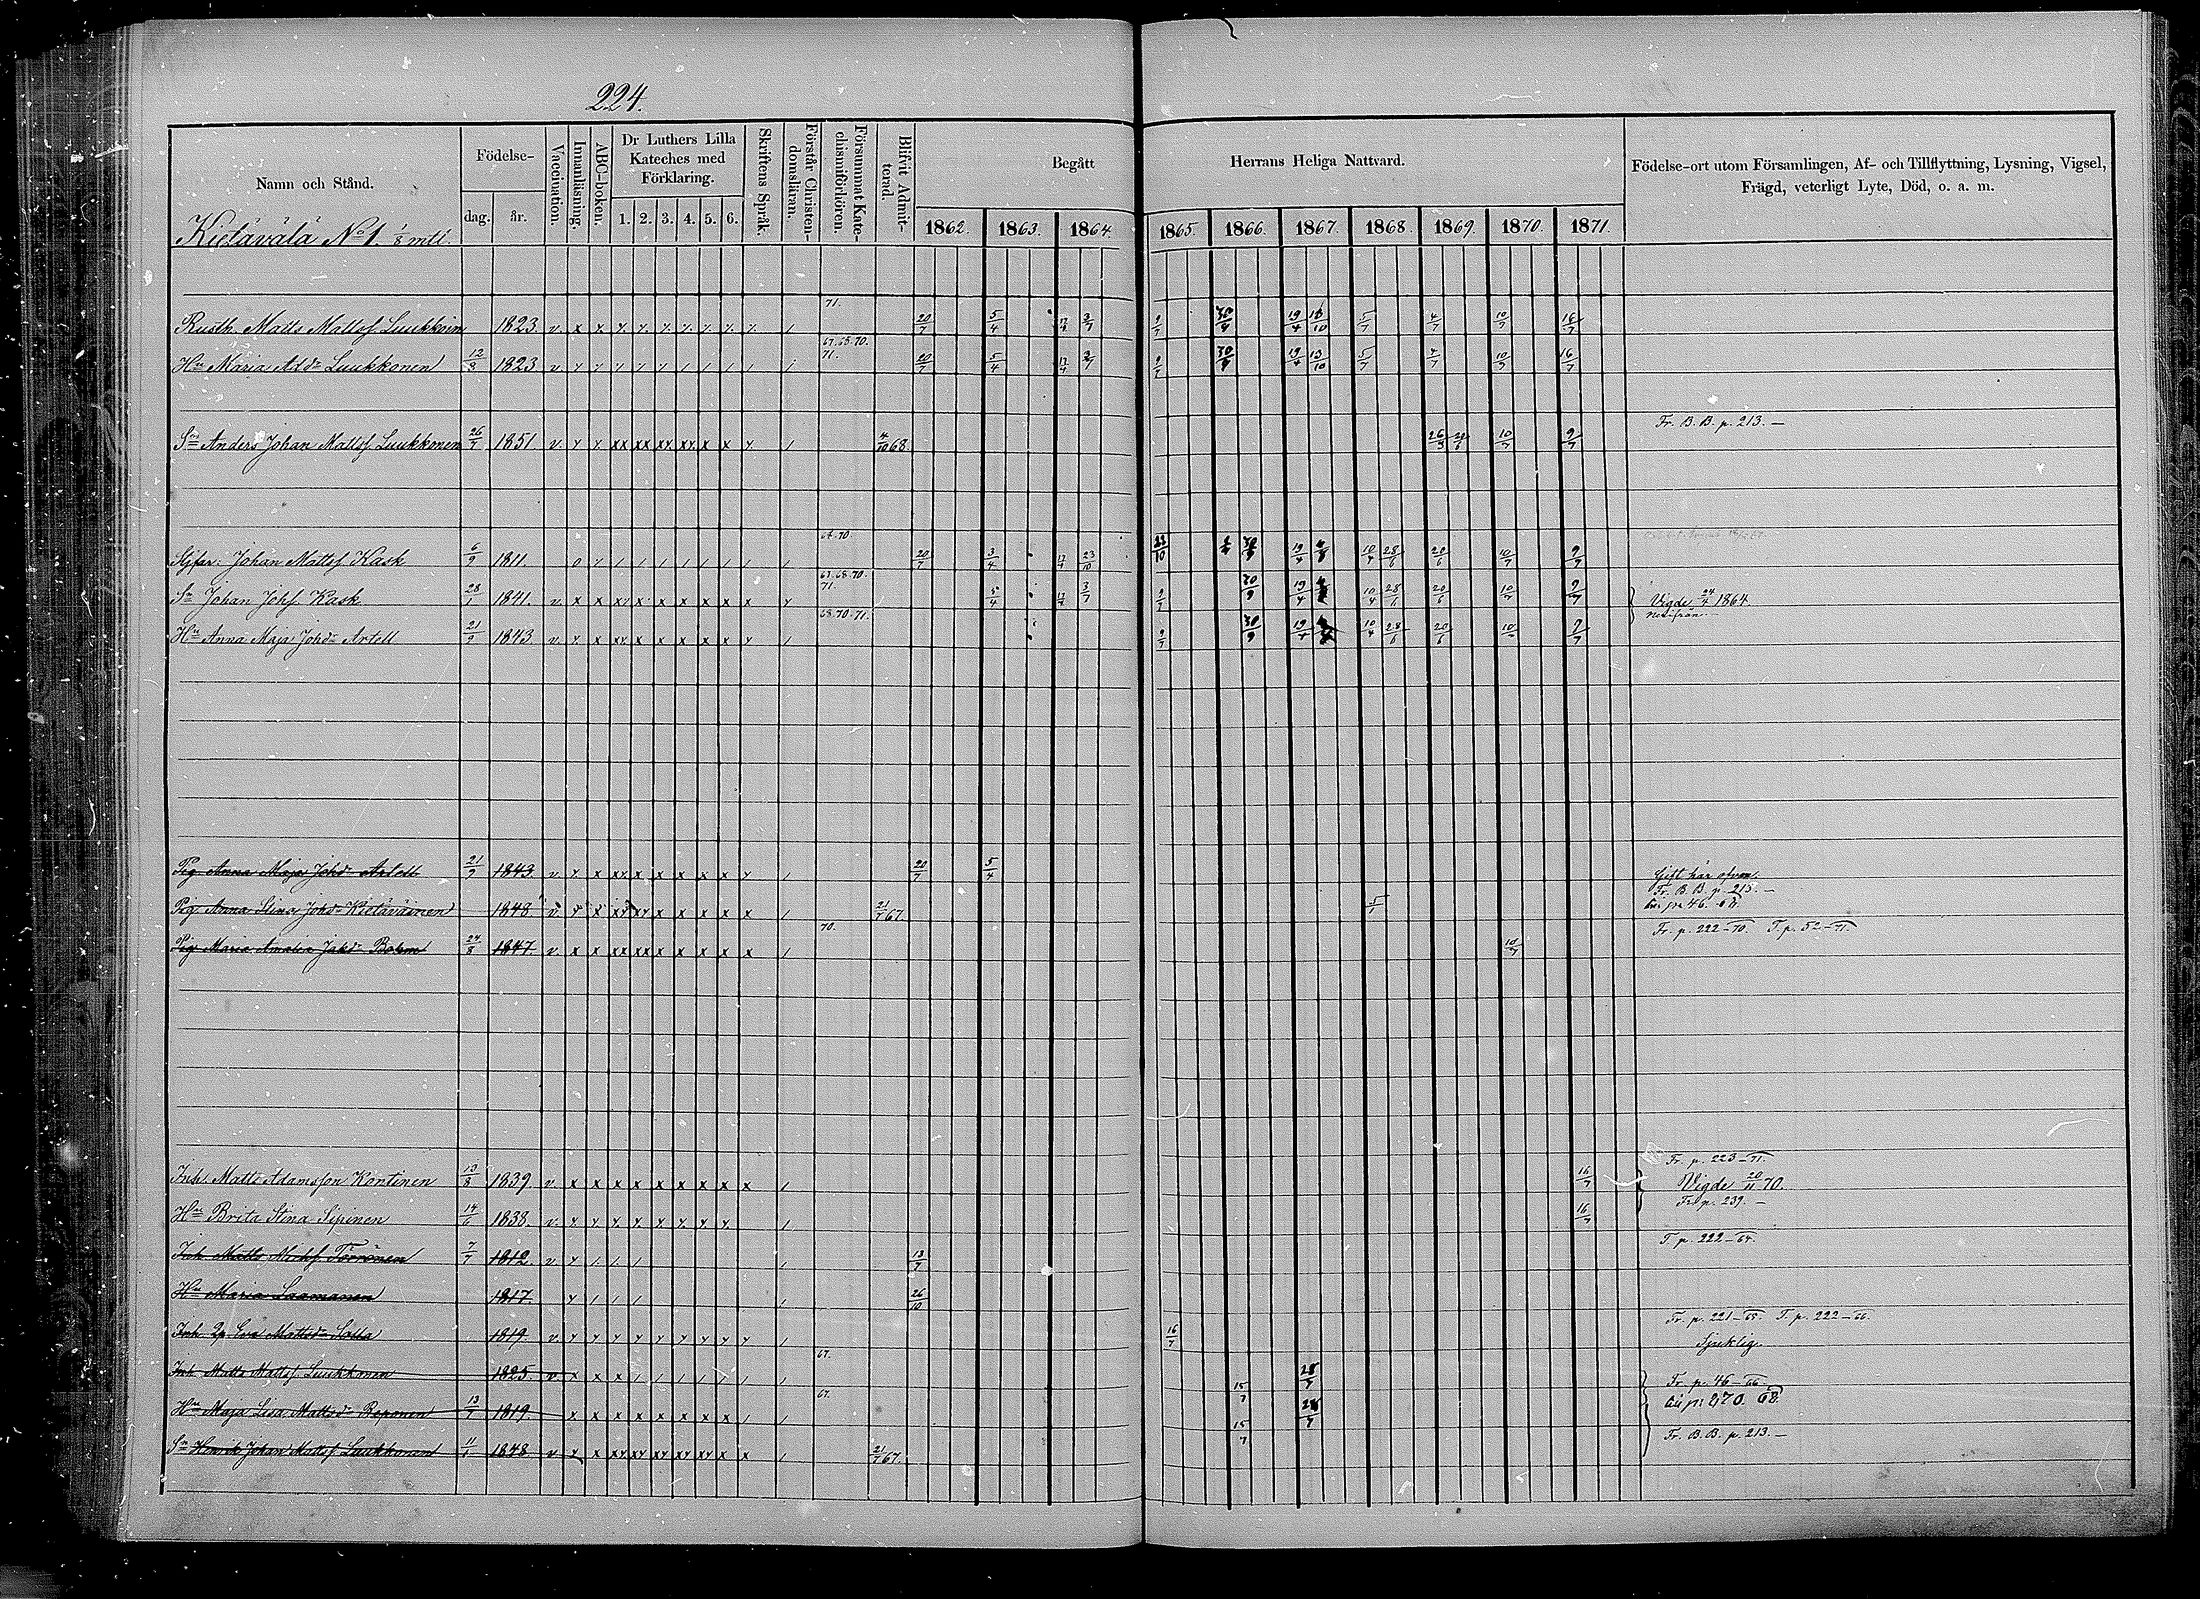 224.
Namn och Stånd.
Födelse-
dag. år.
Vaccination.
Innanläsning.
ABC-boken.
Dr Luthers Lilla
Kateches med
Förklaring.
1. 2. 3. 4. 5. 6.
Skriftens Språk.
Förstår Christen-
domsläran.
Försummat Kate-
chismiförhören.
Blifvit Admit-
terad.
Begått Herrans Heliga Nattvard.
1862. 1863. 1864. 1865. 1866. 1867. 1868. 1869. 1870. 1871.
Födelse-ort utom Församlingen, Af- och Tillflyttning, Lysning, Vigsel,
Frägd, veterligt Lyte, Död, o. a. m.
Kietävälä No 1. 1/8 mtl.
71.
Rusth. Matts Mattsf. Luukkoin 1823. v. 20/7 5/4 17/4 3/7 9/7 30/9 19/4 13/10 5/7 4/7 10/7 16/7
67. 68. 70.
71.
Hu Maria Add. Luukkonen 12/8 1823 v. 20/7 5/4 17/4 3/7 9/7 30/9 19/4 13/10 5/7 4/7 10/7 16/7
Fr. B. B. p. 213. —
Sn Anders Johan Mattsf. Luukkonen 26/7 1851 v. 4/10 68. 10/7 9/7
64. 70.
Stjfar: Johan Mattsf. Kask 6/9 1811. 20/7 3/4 17/4 23/10 23/10 30/9 19/4 10/4 28/6 20/6 10/7 9/7
63. 68. 70.
71.
Sn Johan Johf. Kask 28/1 1841. v. 5/4 17/4 3/7 9/7 30/9 19/4 10/4 28/6 20/6 10/7 9/7 Vigde 24/4 1864
68. 70. 71.
Hu Anna Maja Johd. Artell 21/9 1843. v. 9/7 30/9 19/4 10/4 28/6 20/6 10/7 9/7
Pig Anna Maja Johd. Artell 21/9 1843 v. 20/7 5/4 Gift här ofvan.
Fr. B. B. p. 213. —
Pig Anna Stina Johd. Kietäväinen 1848 v. 21/7 67. 5/1 46. 68.
70.
Fr. p. 222-70. T. p. 52-71.
Pig Maria Amalia Johd. Bohm 24/8 1847. v. 10/7
Fr. p. 223-71.
Inh. Matts Adamsson Kontinen 13/8 1839. v. 16/7 Vigde 20/11 70.
Fr. p. 239. —
Hu Brita Stina Sipinen 14/6 1838. v. 16/7
T p. 222-64.
Inh Matts Törrönen 7/7 1812. v. 13/7
Hu Maria Laamanen 1817. 26/10
Fr. p. 221-65. T. p. 222-66.
Inh. Eva Mattsd. 1819. v. 16/7 Sjuklig.
67.
Inh Matts Mattsf. Luukkonen 1825. v. 15/7 28/7 Fr. p. 46-66.
67.
Hu Maja Lisa Mattsd. Reponen 13/7 1819. 15/7 28/7 270. 68.
Fr. B. B. p. 213. —
Sn Henrik Johan Mattsf. Luukkonen 11/1 1848 v. 21/7 67.